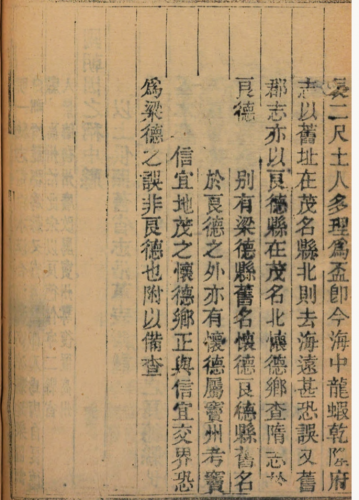 長二尺土人多理爲盃卽今海中龍蝦乾隆府
志以舊址在茂名縣北則去海遠甚恐誤又舊
郡志亦以良德縣在茂名北懷德鄉查隋志於
良德　別有梁德縣舊名懷德良德縣舊名
於良德之外亦有懷德屬竇州考竇
信宜地茂之懷德鄉正與信宜交界恐
爲梁德之誤非良德也附以備查